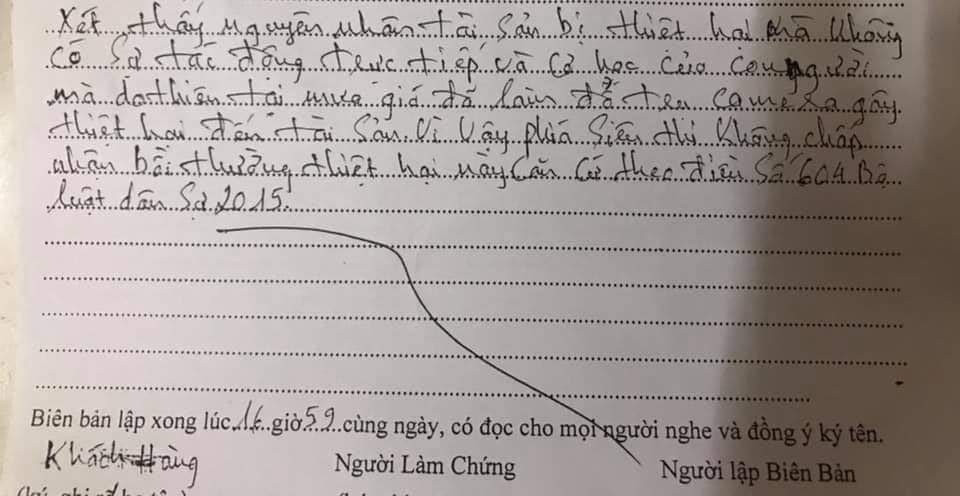 Xét thấy nguyên nhân tài sản bị thiệt hại mà không
có sự tác động trực tiếp và cơ học của con người
mà do thiên tai mưa gió đã làm đổ camera gây
thiệt hại đến tài sản. Vì vậy phía Siêu thị không chấp
nhận bồi thường thiệt hại này căn cứ theo điều số 604 Bộ
luật dân sự 2015.
Biên bản lập xong lúc 16 giờ 59 cùng ngày, có đọc cho mọi người nghe và đồng ý ký tên.
Khách Hàng Người Làm Chứng Người lập Biên Bản